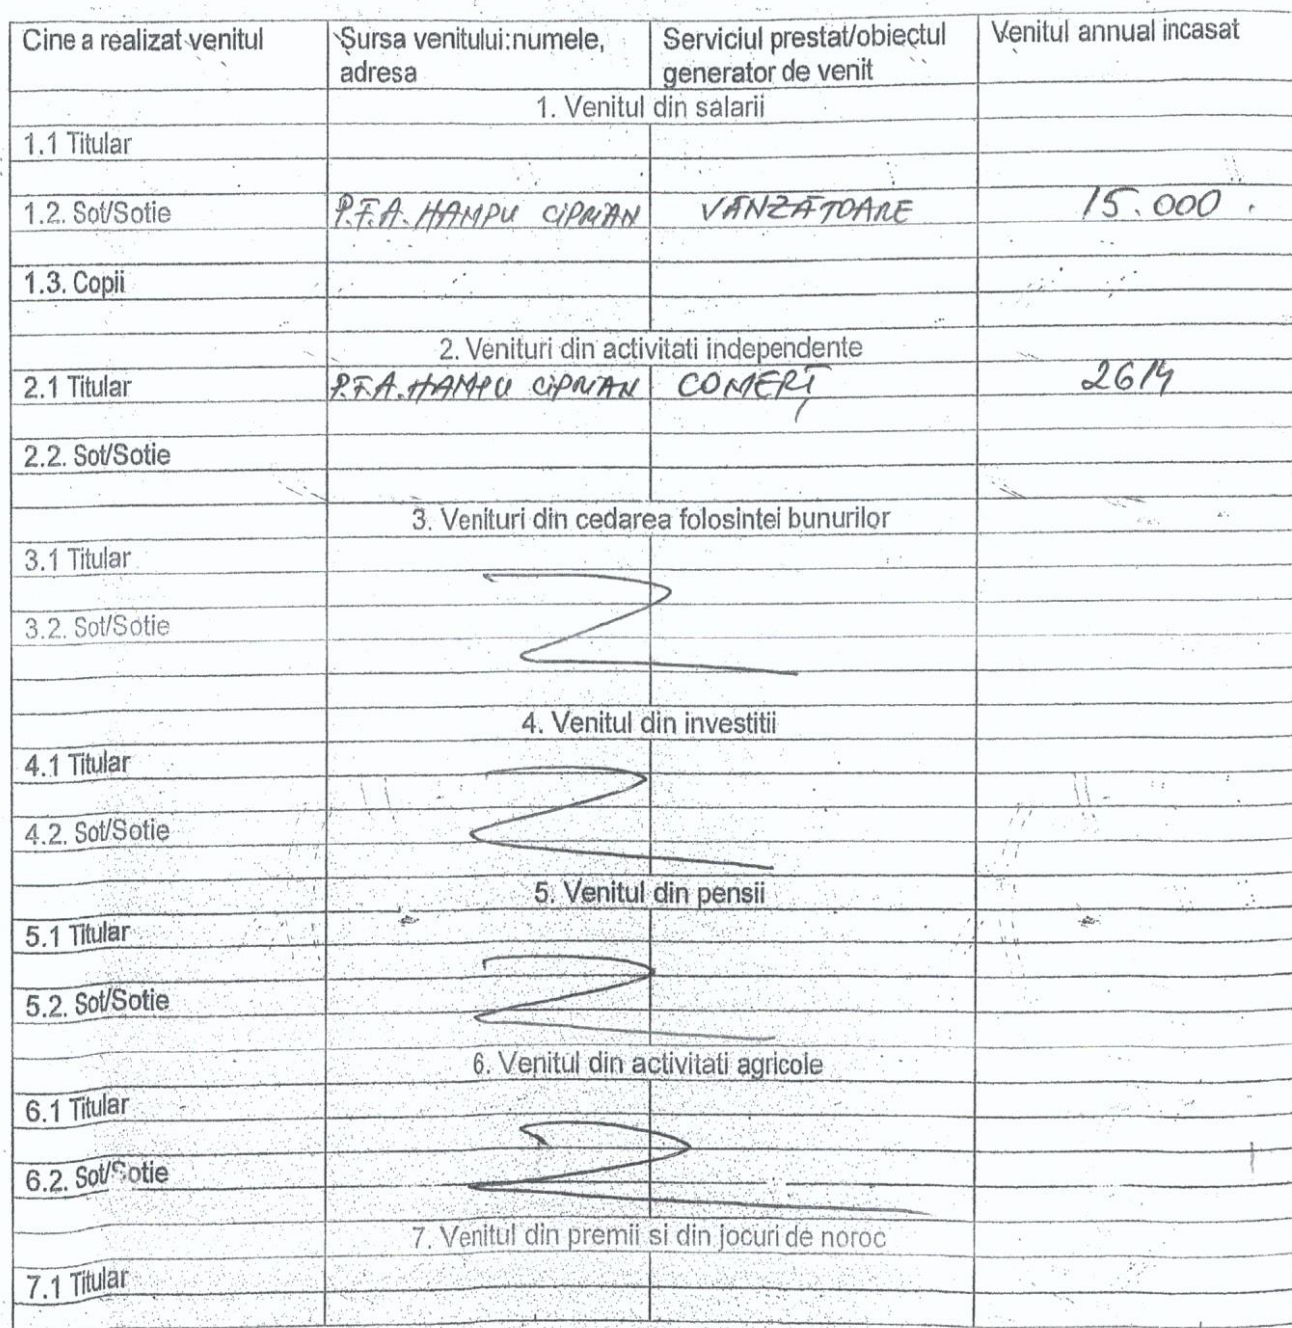 Cine a realizat venitul Sursa venitului:numele, adresa Serviciul prestat/obiectul generator de venit Venitul annual incasat
1. Venitul din salarii
1.1 Titular
1.2. Sot/Sotie P.F.A. HAMPU CIPRIAN VÂNZĂTOARE 15.000
1.3. Copii
2. Venituri din activitati independente
2.1 Titular P.F.A. HAMPU CIPRIAN COMERȚ 2614
2.2. Sot/Sotie
3. Venituri din cedarea folosintei bunurilor
3.1 Titular
3.2. Sot/Sotie
4. Venitul din investitii
4.1 Titular
4.2. Sot/Sotie
5. Venitul din pensii
5.1 Titular
5.2. Sot/Sotie
6. Venitul din activitati agricole
6.1 Titular
6.2. Sot/Sotie
7. Venitul din premii si din jocuri de noroc
7.1 Titular